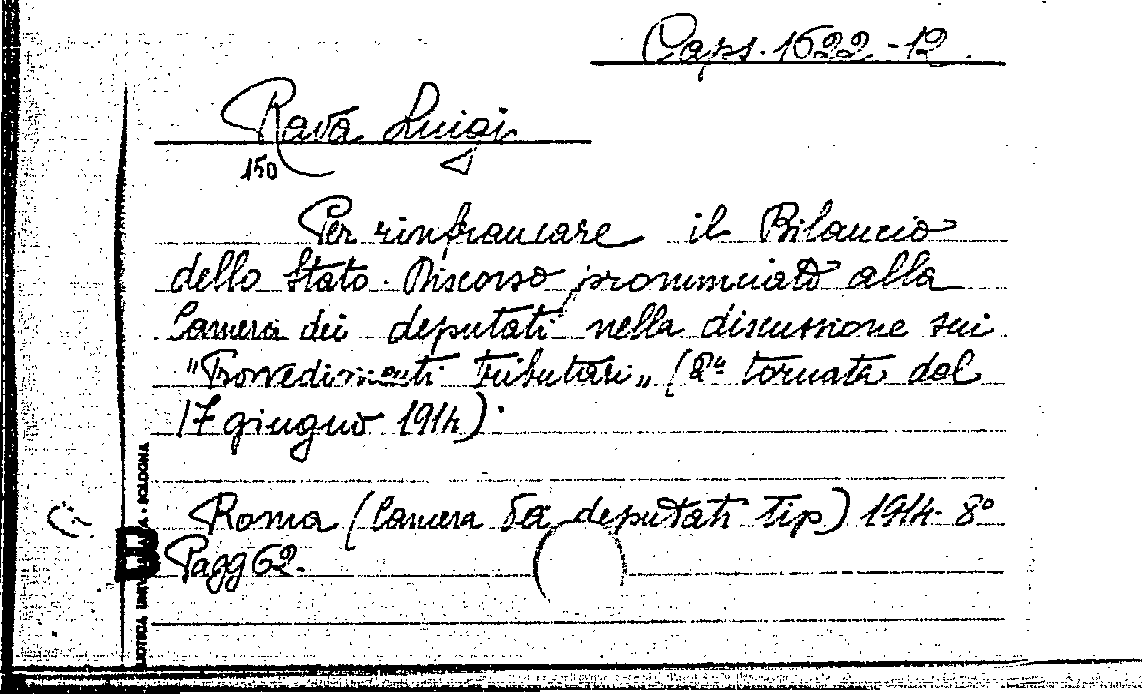 Caps. 1622-12.
Rava Luigi
150
Per rinfrancare il Bilancio
dello Stato. Discorso pronunciato alla
Camera dei deputati nella discussione sui
"Provvedimenti Tributari„ (2ª tornata del
17 giugno 1914).
Roma (Camera dei deputati tip) 1914 8°
Pagg 62.
BOLOGNA